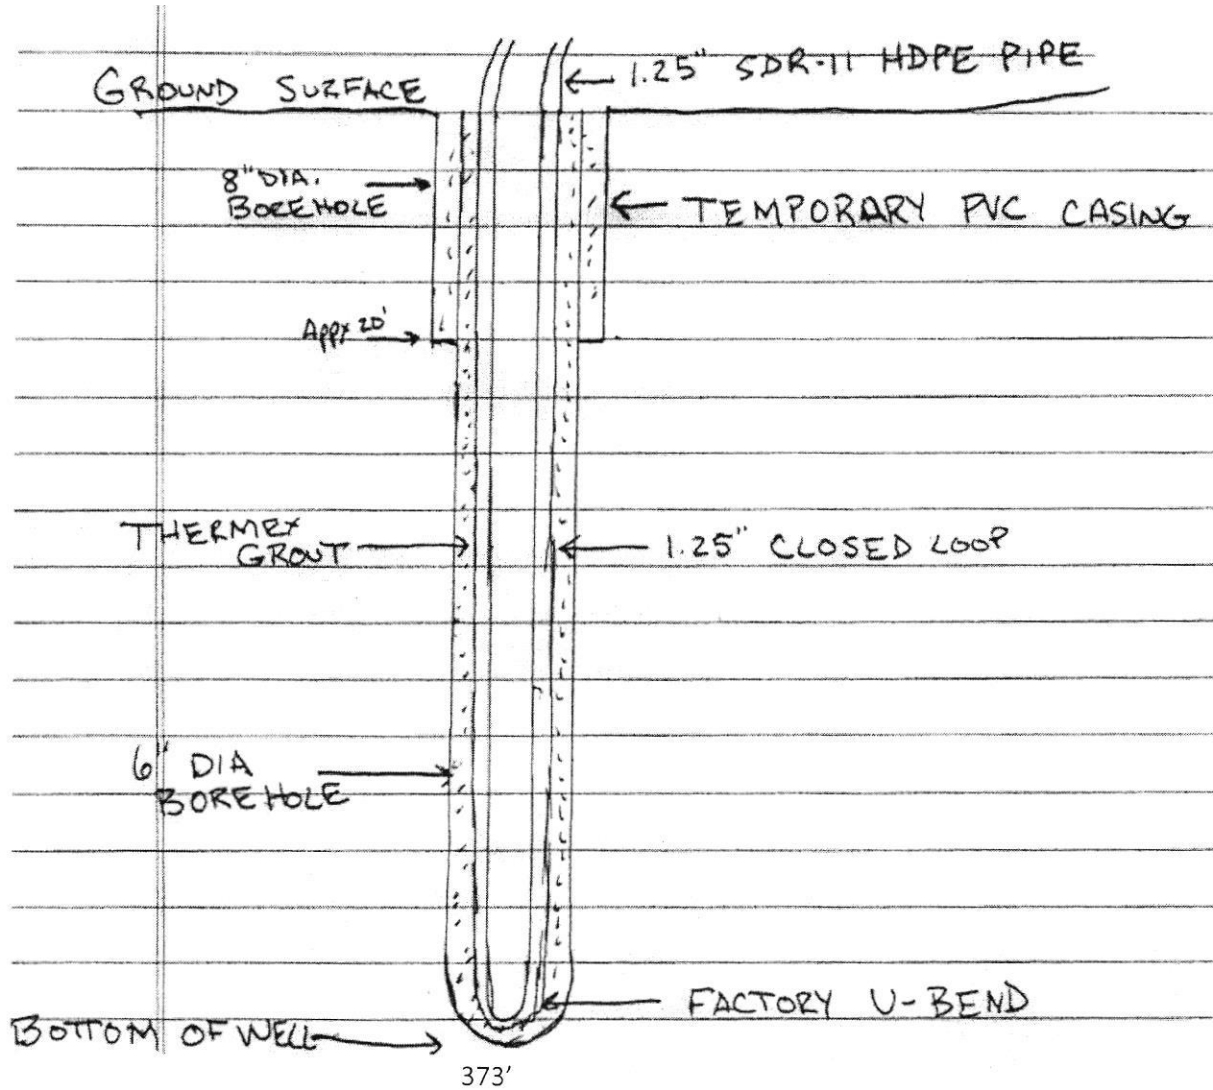 1.25" SDR-11 HDPE PIPE
GROUND SURFACE
8" DIA.
BOREHOLE
TEMPORARY PVC CASING
Appx 20'
THERMEX
GROUT
1.25" CLOSED LOOP
6" DIA
BOREHOLE
FACTORY U-BEND
BOTTOM OF WELL
373'